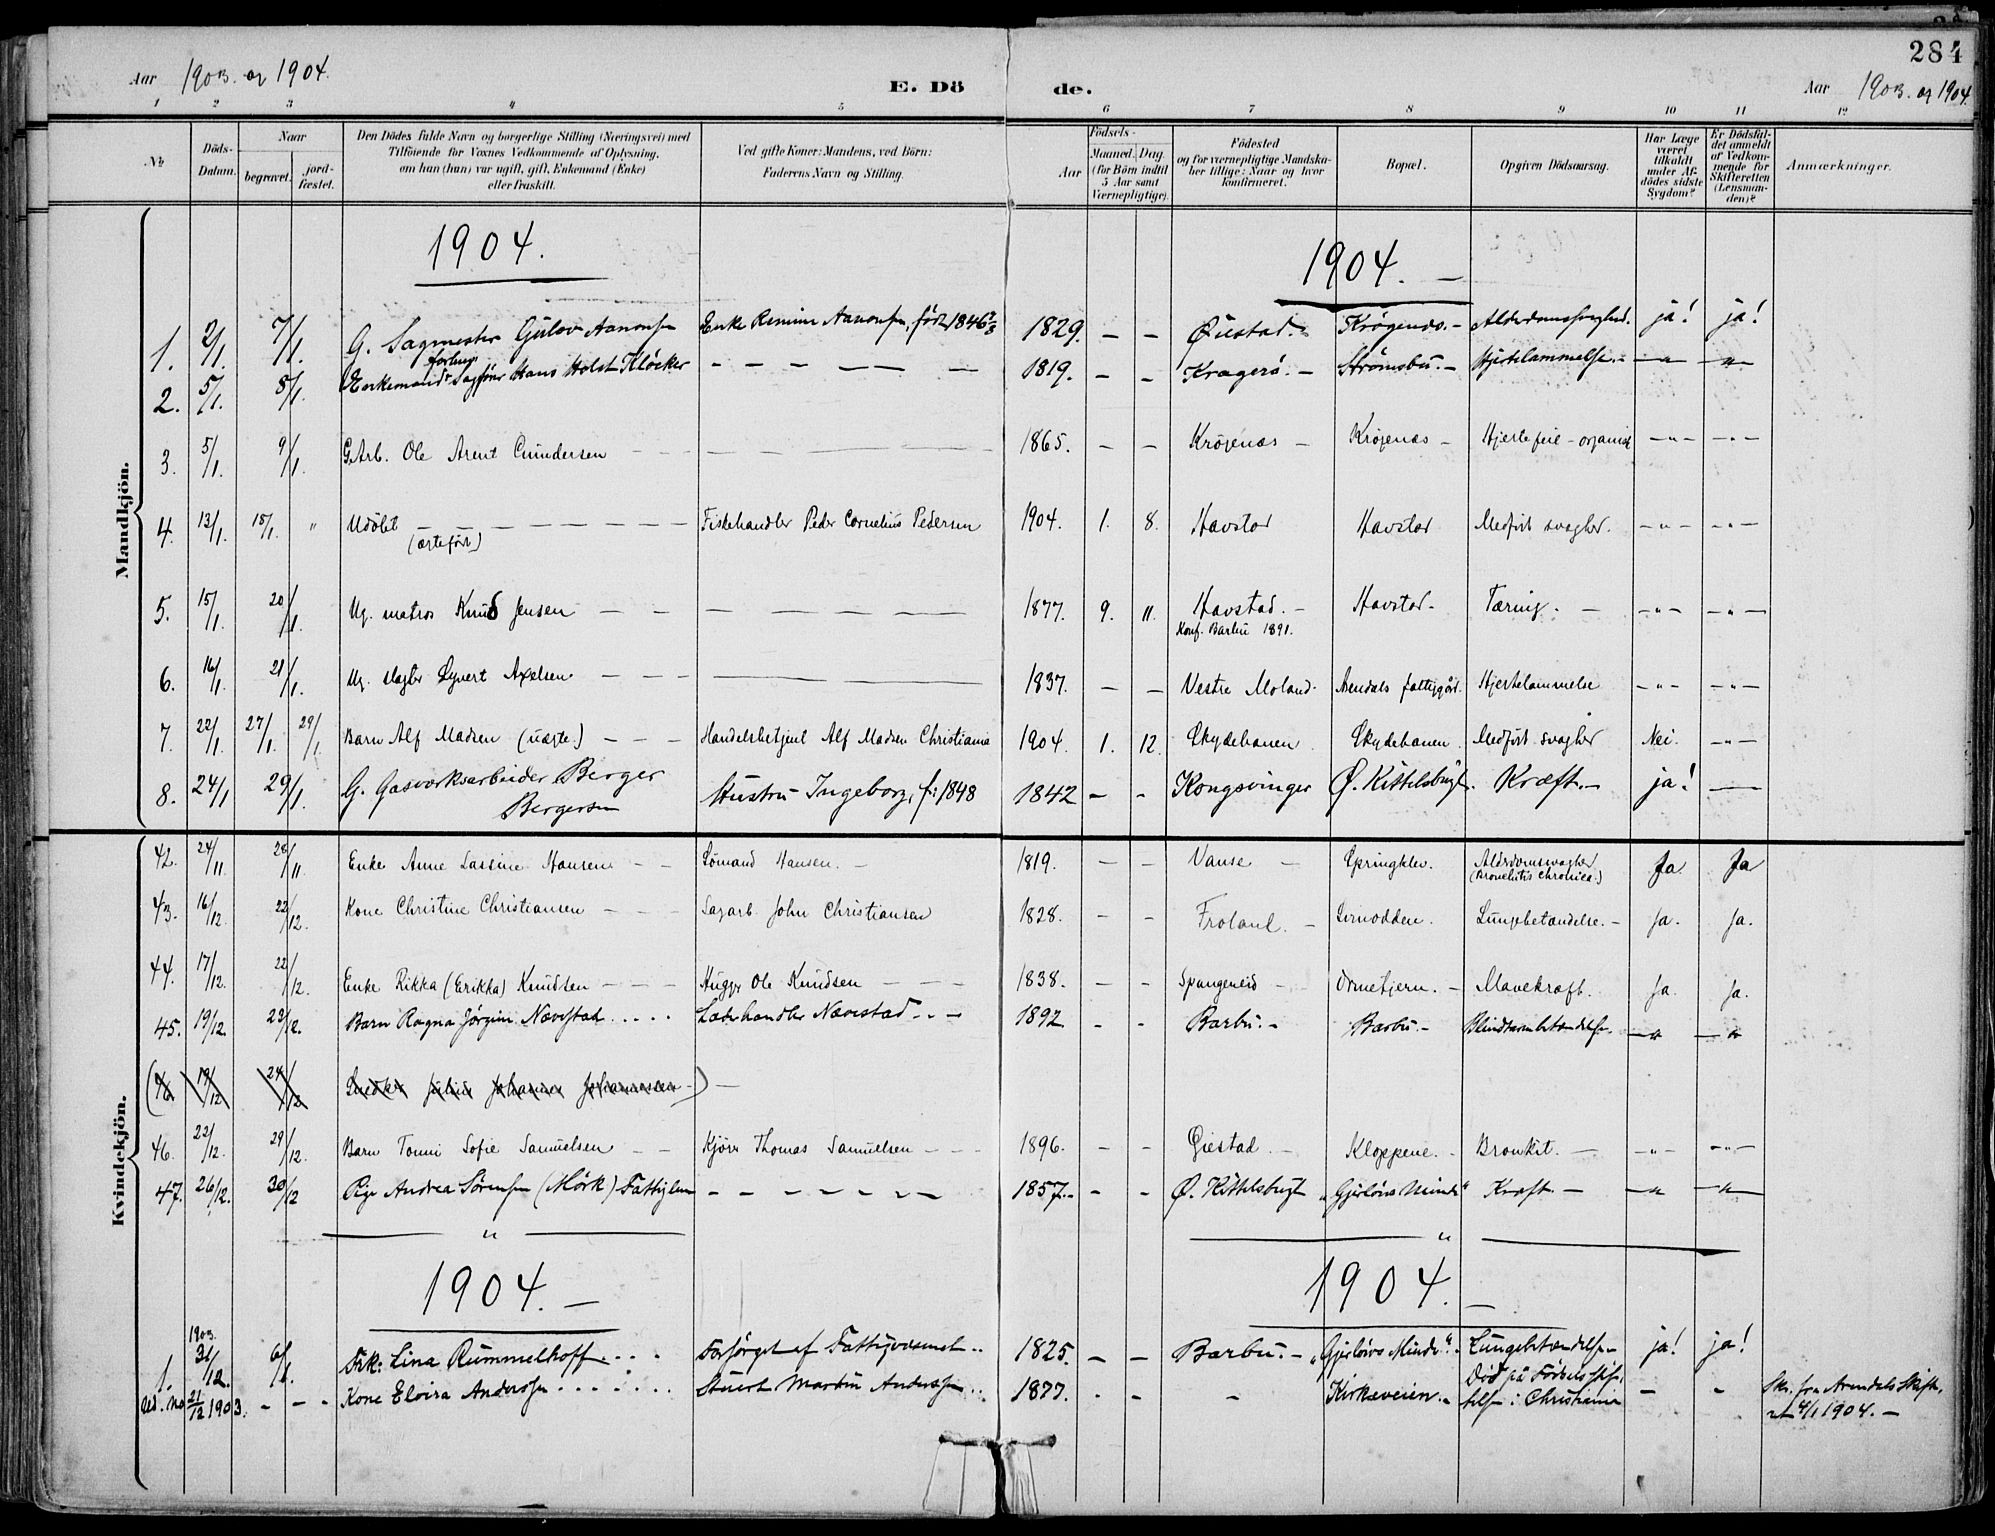 284
Aar 1903 og 1904.
E. Dö de.
Aar 1903 og 1904.
1 2 3 4 5 6 7 8 9 10 11 12
No
Döds-Datum.
Naar
begravet.
jord-fæstet.
Den Dödes fulde Navn og borgerlige Stilling (Næringsvei) med
Tilföiende for Voxnes Vedkommende af Oplysning,
om han (hun) var ugift, gift, Enkemand (Enke)
eller fraskilt.
Ved gifte Koner: Mandens, ved Börn:
Faderens Navn og Stilling.
Födsels-
Aar
Maaned. Dag.
(for Börn indtil
5 Aar samt
Værnepligtige).
Födested
og for værnepligtige Mandska-
ber tillige: Naar og hvor
konfirmeret.
Bopæl.
Opgiven Dödsaarsag.
Har Læge
været
tilkaldt
under Af-
dödes sidste
Sygdom?
Er Dödsfal-
det anmeldt
af Vedkom-
mende for
Skifteretten
(Lensman-
den)?
Anmærkninger.
Mandkjön.
1904. 1904. —
1. 2/1. 7/1. G. Sagmester Gülov Aanonsen Enke Remine Aanonsen, født 1846 1829. — — Øiestad. Krögenæs. — Alderdomssvaghed. ja! ja!
2. 5/1. 8/1. Enkemand Sagfører Hans Holst Klöcker — — — — — 1819. — — Kragerö. — Strömsbu. — Hjertelammelse. — — " — — " —
3. 5/1. 9/1. G. Arb. Ole Arent Gundersen — — — 1865. — — Krögenæs — Krögenæs — Hjertefeil — organisk — " — — " —
4. 13/1. 18/1. " Udöbt — — — — — Fiskehandler Peder Cornelius Pedersen 1904. 1. 8. Havstad Havstad Medført svaghed. — " — — " —
(ægtefödt)
5. 15/1. 20/1. Ug. matros Knud Jensen — — — — 1877. 9. 11. Havstad. — Havstad — Tæring. — — " — — " —
Konf. Barbu 1891.
6. 16/1. 21/1. Ug. slagter Syvert Axelsen — — — 1837. — — Vestre Moland. Arendals fattiggård. Hjertelammelse — " — — " —
7. 22/1. 27/1. 29/1. Barn Alf Madsen (uægte.) — — — Handelsbetjent Alf Madsen Christiania 1904. 1. 12. Skydebanen Skydebanen. Medført svaghed Nei. — " —
8. 24/1 29/1. G. Gasværksarbeider Berger Hustru Ingeborg, f: 1848 1842 — — Kongsvinger Ø. Kittelsbugt. Kræft. — ja! —
Bergersen
Kvindekjön.
42. 24/11 28/11. Enke Anne Lassine Hansen — — Sömand Hansen. — 1819. — — Vanse — Springklev. Alderdomssvaghed Ja. Ja
(Bronchitis chronica.)
43. 16/12. 22/12. Kone Christine Christiansen — — — Sagarb. John Christiansen 1828. — — Froland. — Sernodden. Lungebetændelse. — Ja. Ja.
44. 17/12. 22/12. Enke Rikka (Erikka) Knudsen — — — Hugger Ole Knudsen — — — 1838. — — Spangereid — Ormetjern. — Mavekræft. Ja. Ja.
45. 19/12. 23/12. Barn Ragna Jörgine Nævestad . . . . Læderhandler Nævestad . . — 1892. — — Barbu. — Barbu. — Blindtarmbetændelse. — " — — " —
(46 19/12 24/12 Snedker Julius Johannes Johannessen —) —
46. 22/12. 29/12. Barn Tomi Sofie Samuelsen — — Kjörer Thomas Samuelsen — — — 1896. — — Øiestad. — Kloppene. — Bronkit. — — " — — " —
47. 26/12. 30/12 Pige Andrea Sörensen (Mörk) Fattiglem — — — — — — 1857. — — — Ø. Kittelsbugt „Gjerlövs Minde" Kræft. — — " — — " —
" "
1904. — 1904. —
1903.
1. 31/12. Frk: Lina Rümmelhoff . . . . Forsörget af Fattigvæsenet . . 1825. — — Barbu. — „Gjerlövs Minde". Lungebetændelse — ja! ja!
21/12 1903. — — — Kone Elvira Andersen . . . . . . . Stuert Martin Andersen . . 1877. — — — Kirkeveien. — Död på Födselsstif- — —
telse i Christiania
Skr. fra Arendals Skifte-
ret 4/1 1904. —